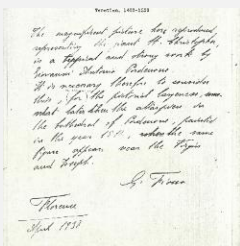 Venetian, 1483-1539
The magnificent picture here reproduced,
representing the giant St. Christopher,
is a typical and strong work by
Giovanni Antonio Pordenone
It is necessary therefore to consider
this, for the pictorial
what later than the altarpiece in
the Cathedral of Pordenone, painted
in the year 15, where the same
figure appears near the Virgin
and Joseph.
G. Fiocco
Florence
April 193